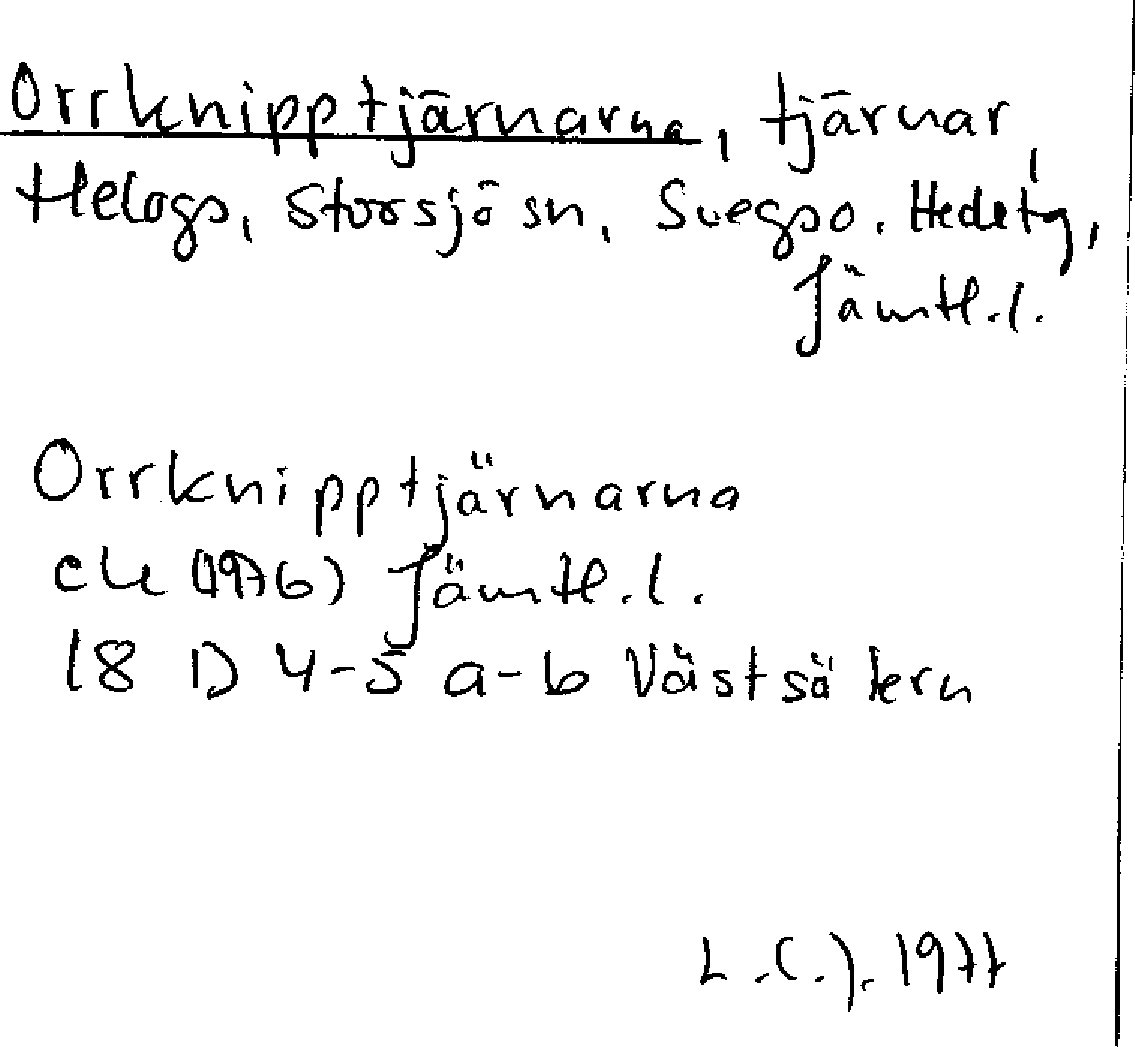 Orrknipptjärnarna, tjärnar,
Helags, Storsjö sn, Svegs
Jämtl.l.
Orrknipptjärnarna
ek (1976) Jämtl.l.
18 D 4-5 a-b Västsätern
L.C.J. 1977